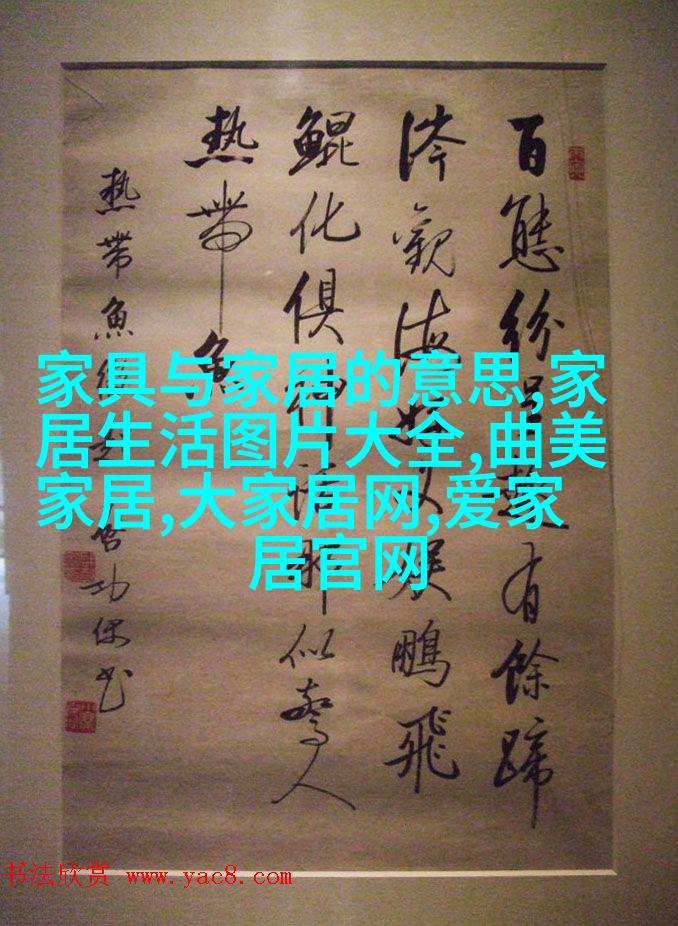 百態紛呈藝有餘蹄
涔觀海 鵬飛
鯤化俱 似驚人
熱帶魚
熱帶魚 啓功 書
家具与家居的意思,家
居生活图片大全,曲美
家居,大家居网,爱家
居官网
书法欣赏 www.yac8.com